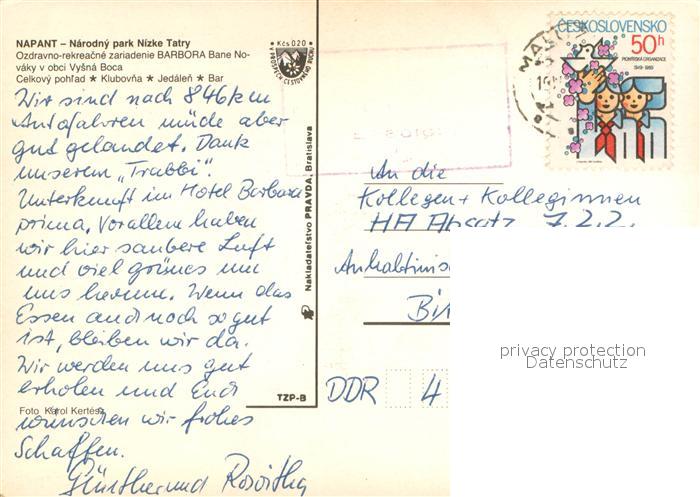 NAPANT – Národný park Nízke Tatry
Ozdravno-rekreačné zariadenie BARBORA Bane No-
váky v obci Vyšná Boca
Celkový pohľad ★ Klubovňa ★ Jedáleň ★ Bar
Kčs 0,20
V PROSPECH CESTOVNÉHO RUCHU
ČESKOSLOVENSKO
50h
PIONÝRSKÁ ORGANIZACE
1949-1989
Wir sind nach 846 km
Autofahren müde aber
gut gelandet. Dank
unserem „Trabbi".
Unterkunft im Hotel Barbora
prima. Vorallem haben
wir hier saubere Luft
und viel grünes um
uns herum. Wenn das
Essen auch noch so gut
ist, bleiben wir da.
Wir werden uns gut
erholen und Euch
wünschen wir frohes
Schaffen.
Günther und Roswitha
Foto Karol Kertész
Nakladateľstvo PRAVDA, Bratislava
TZP-B
An die
Kollegen + Kolleginnen
HA Absatz 7.2.2.
Anhaltinis
Bi
DDR 4
privacy protection
Datenschutz